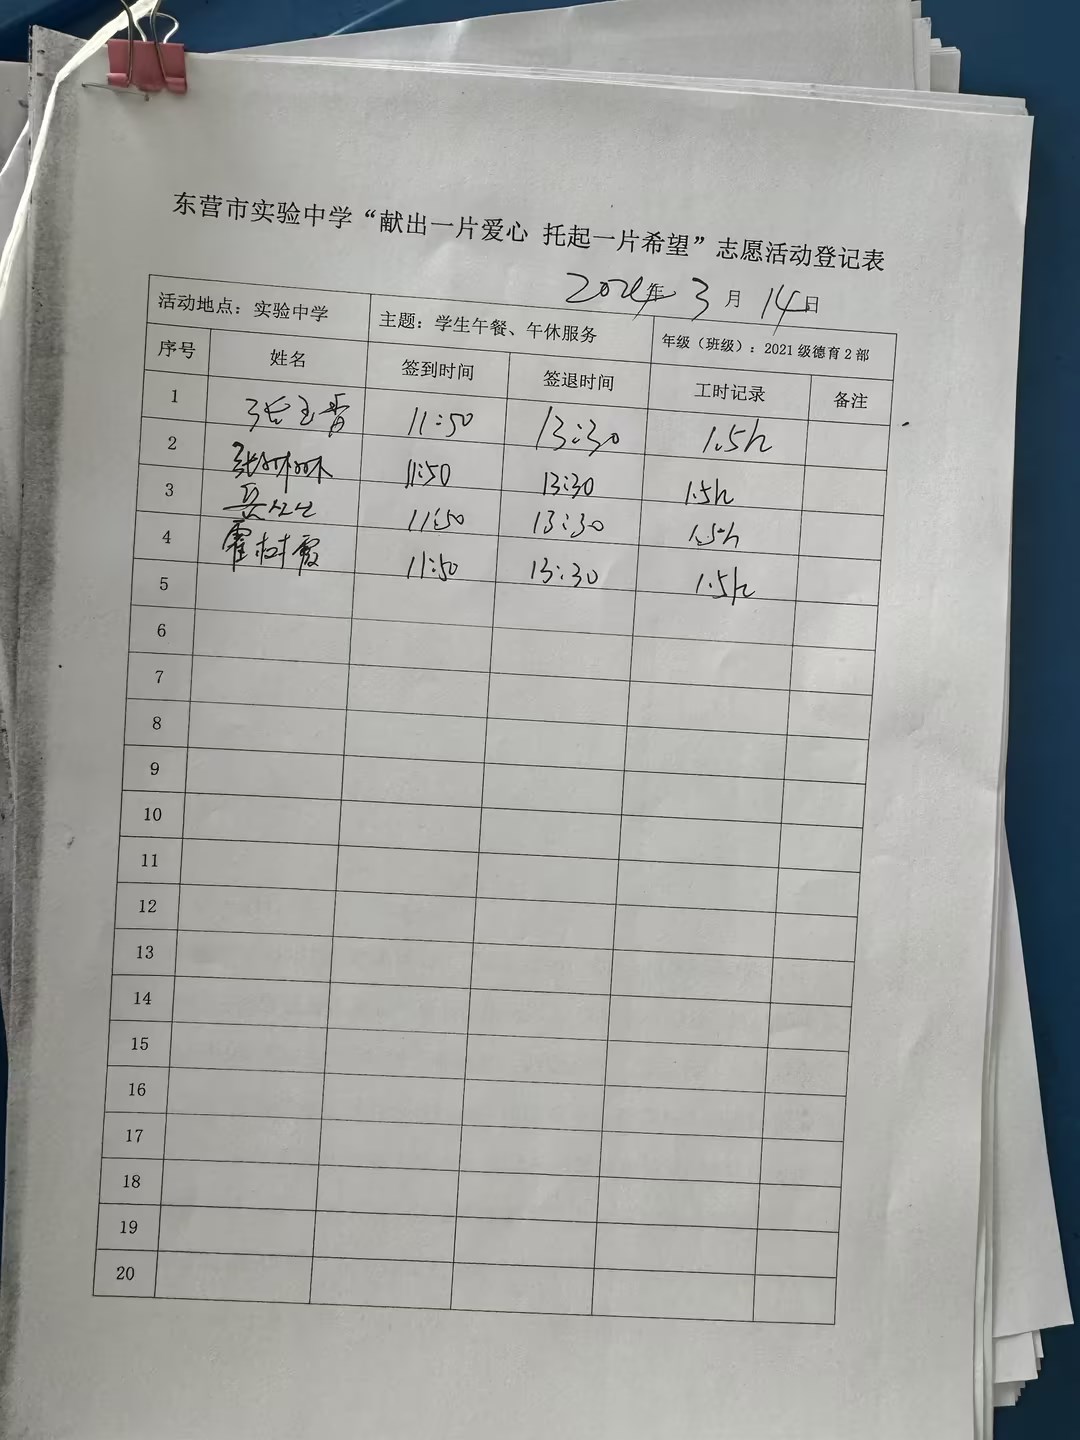 东营市实验中学“献出一片爱心 托起一片希望”志愿活动登记表
2024年 3月 14日
活动地点：实验中学 主题：学生午餐、午休服务 年级（班级）：2021级德育2部
序号 姓名 签到时间 签退时间 工时记录 备注
1 11:50 13:30 1.5h
2 张林林 11:50 13:30 1.5h
3 11:50 13:30 1.5h
4 霍树霞 11:50 13:30 1.5h
5
6
7
8
9
10
11
12
13
14
15
16
17
18
19
20